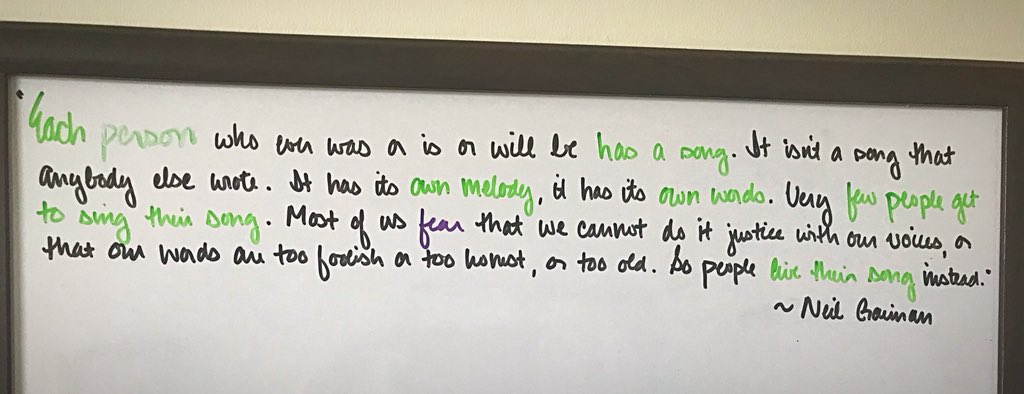 "Each person who ever was or is or will be has a song. It isn't a song that
anybody else wrote. It has its own melody, it has its own words. Very few people get
to sing their song. Most of us fear that we cannot do it justice with our voices, or
that our words are too foolish or too honest, or too old. So people live their song instead."
~ Neil Gaiman